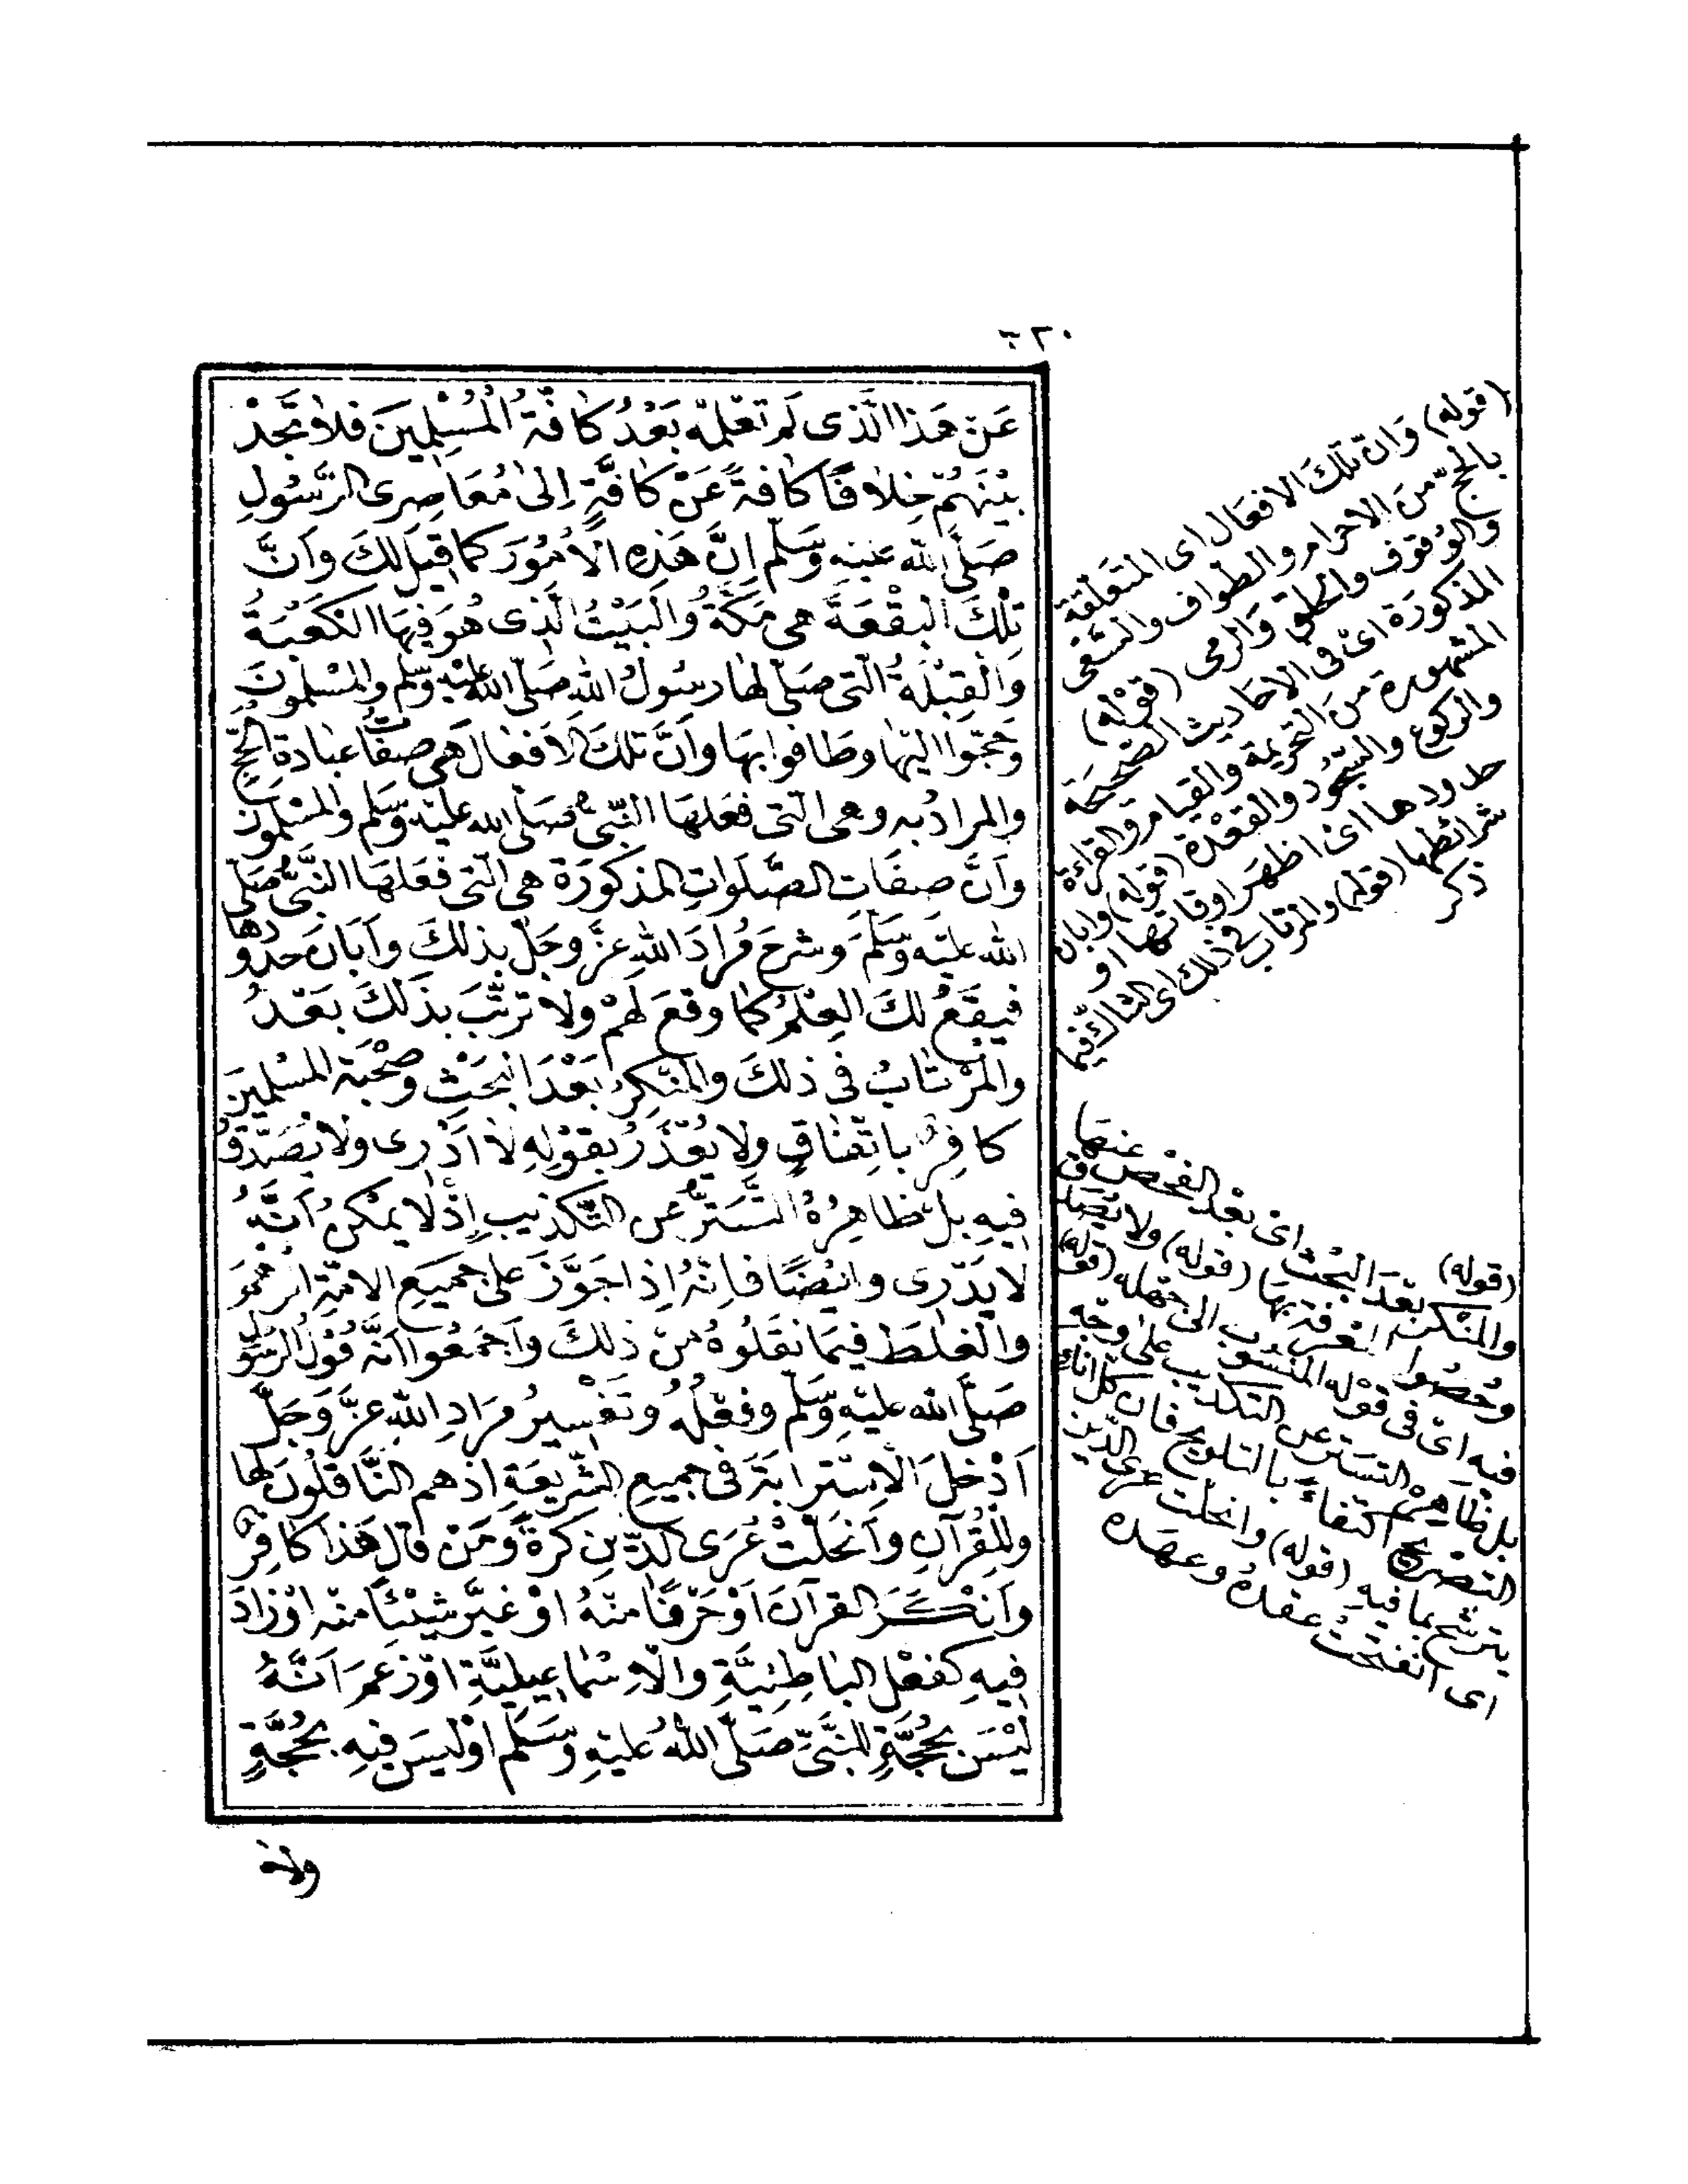 ٢٢٠
عَنْ هَذَا الَّذِى لَمْ تَعْلَمْهُ بَعْدُ كَافَّةُ الْمُسْلِمِينَ فَلَا تَجِدْ
بَيْنَهُمْ خِلَافًا كَافَّةً عَنْ كَافَّةٍ إِلَى مُعَاصِرِى الرَّسُولِ
صَلَّى الله عليه وَسَلَّم إِنَّ هَذِهِ الْأُمُورَ كما قِيلَ لَكَ وَاَنَّ
تِلْكَ الْبُقْعَةَ هى مَكَّةُ وَالْبَيْتُ الَّذِى هُوَ فِيهَا الْكَعْبَةُ
وَالْقِبْلَةُ الَّتِى صَلَّى لها رسُولُ الله صَلَّى الله عَلَيْهِ وسَلَّم والمُسْلِمُونَ
وَحَجُّوا اِلَيْهَا وطَافوا بِهَا وَاَنَّ تِلْكَ الْاَفعَالَ هى صفَات عِبَادَةِ الْحَجِّ
والمرادُ به وهى الَّتى فَعَلَهَا النَّبِىُّ صَلَّى الله عليْه وَسَلَّم والمُسْلِمُونَ
وَاَنَّ صِفَات الصَّلَوَاتِ المَذكُورَةَ هى الَّتى فَعَلَهَا النَّبِىُّ صَلَّى
الله عليْه وَسَلَّمَ وشرحَ مُرَادَ الله عزَّ وجَلَّ بذلكَ واَبَانَ حدُودها
فيَقَعُ لَكَ العِلْمُ كما وقعَ لَهُمْ ولا ترتَبْ بذَلكَ بَعْدُ
والمُرْتَابُ فى ذلكَ والمُنْكِرُ بَعْدَ الْبَحْثِ وَصُحْبَةِ المُسْلِمِينَ
كافِرٌ بِاتِّفَاقٍ ولا يُعْذَرُ بقَوْلِهِ لَا اَدْرِى ولا يُصَدَّقُ
فيهِ بل ظاهِرُهُ التَّسَتُّرُ عن التَّكذيبِ إِذْ لَا يمْكِنُ اَنَّهُ
لَا يَدْرِى وَاَيْضًا فاِنَّهُ اِذَا جَوَّزَ على جميعِ الامَّةِ الوَهْمَ
والْغَلَطَ فِيمَا نَقَلُوهُ مِنْ ذلكَ وَاَجْمَعُوا اَنَّهُ قَوْلُ الرَّسُولِ
صَلَّى الله عليْهِ وسَلَّم وفعْلُهُ وتَفْسِيرُ مُرَادِ الله عَزَّ وَجَلَّ
اَدْخَلَ الْاِسْتِرَابَةَ فى جميعِ الشَّرِيعَةِ اذ هم النَّاقِلُونَ لها
وللقُرْآنِ وَانْحَلَّتْ عُرَى الدِّينِ كَرَّةً وَمَنْ قَالَ هَذَا كَافِرٌ
وَاَنْكَرَ القرآنَ اَوْ حَرْفًا مِنْهُ اَوْ غيَّرَ شيْئًا مِنْه اَوْ زَادَ
فِيهِ كَفِعْلِ البَاطِنِيَّةِ والْاِسْمَاعِيلِيَّةِ اَوْ زعمَ اَنَّهُ
لَيْسَ بحُجَّةٍ للنَّبِىِّ صَلَّى اللهُ عليْهِ وَسَلَّم اَوْ لَيْسَ فيهِ بحُجَّةٍ
ولا
(قوله) وَانّ تلكَ الافعَال اى المتعَلقة
بالحجّ منَ الاحرام والطواف والسَّعى
والوُقوف والحلق وَالرمى (قوْله)
المذكورَة اىْ فى الاحَاديث الصَّحيحَة
المشهورة منَ التحريمة والقيام والقراءة
والركوع والسّجود والقعْدة (قوله) وابان
حدودها اىْ اظهَر اوقاتها او
شرائطها (قوله) والمرتاب فى ذلك اى الشاكّ فيما
ذكر
(قوله) والمنْكر بَعْدَ البحْث اىْ بعْد الفحْص عنهَا
وخصُوا المعْرفة بها (قوله) ولا يُصَدّق
فيه اىْ فى قوْله المنسُوب الى جَهله (قوله)
بل ظاهرهُ التستر عن التكذيب على وجْه
التصْريح اكتفاءً بالتلويح فان كل اناءٍ
يترشح بما فيه (قوله) وانحلت عرى الدّين
اى انفتحت عقدهُ وعهَده